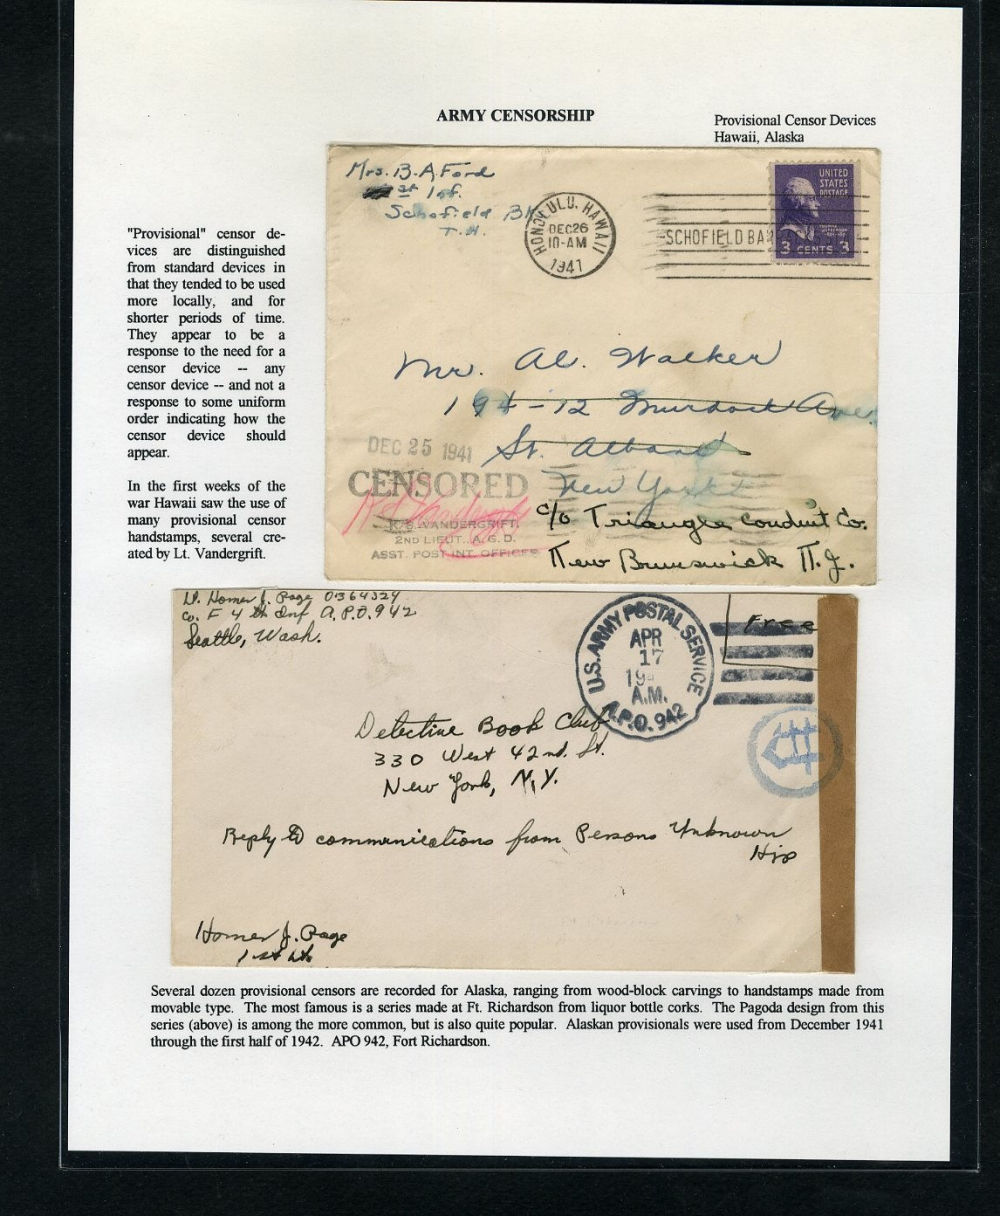 ARMY CENSORSHIP
Provisional Censor Devices
Hawaii, Alaska
"Provisional" censor de-
vices are distinguished
from standard devices in
that they tended to be used
more locally, and for
shorter periods of time.
They appear to be a
response to the need for a
censor device -- any
censor device -- and not a
response to some uniform
order indicating how the
censor device should
appear.
In the first weeks of the
war Hawaii saw the use of
many provisional censor
handstamps, several cre-
ated by Lt. Vandergrift.
Mrs. B. A. Ford
st Inf.
Schofield Bk
T.H.
HONOLULU, HAWAII
DEC 26
10-AM
1941
SCHOFIELD BA
UNITED
STATES
POSTAGE
3 CENTS 3
Mr. Al. Walker
194-12 Murdock Ave
St. Albans
New York
c/o Triangle Conduit Co.
New Brunswick N.J.
DEC 25 1941
CENSORED
K. S. VANDERGRIFT,
2ND LIEUT., A. G. D.
ASST. POST INT. OFFICER
Lt. Homer J. Page 0364324
Co. F 4th Inf A.P.O. 942
Seattle, Wash.
U.S. ARMY POSTAL SERVICE
APR
17
19
A.M.
A.P.O. 942
Free
Detective Book Club
330 West 42nd St.
New York, N.Y.
Reply to communications from Persons Unknown
HJP
Homer J. Page
1st Lt.
Several dozen provisional censors are recorded for Alaska, ranging from wood-block carvings to handstamps made from
movable type. The most famous is a series made at Ft. Richardson from liquor bottle corks. The Pagoda design from this
series (above) is among the more common, but is also quite popular. Alaskan provisionals were used from December 1941
through the first half of 1942. APO 942, Fort Richardson.